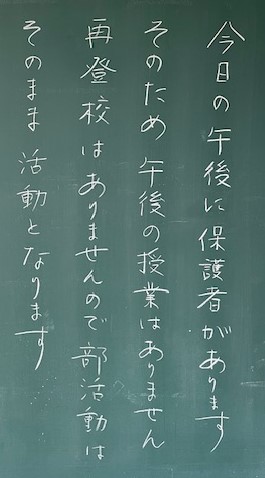 今日の午後に保護者があります
そのため午後の授業はありません
再登校はありませんので部活動は
そのまま活動となります